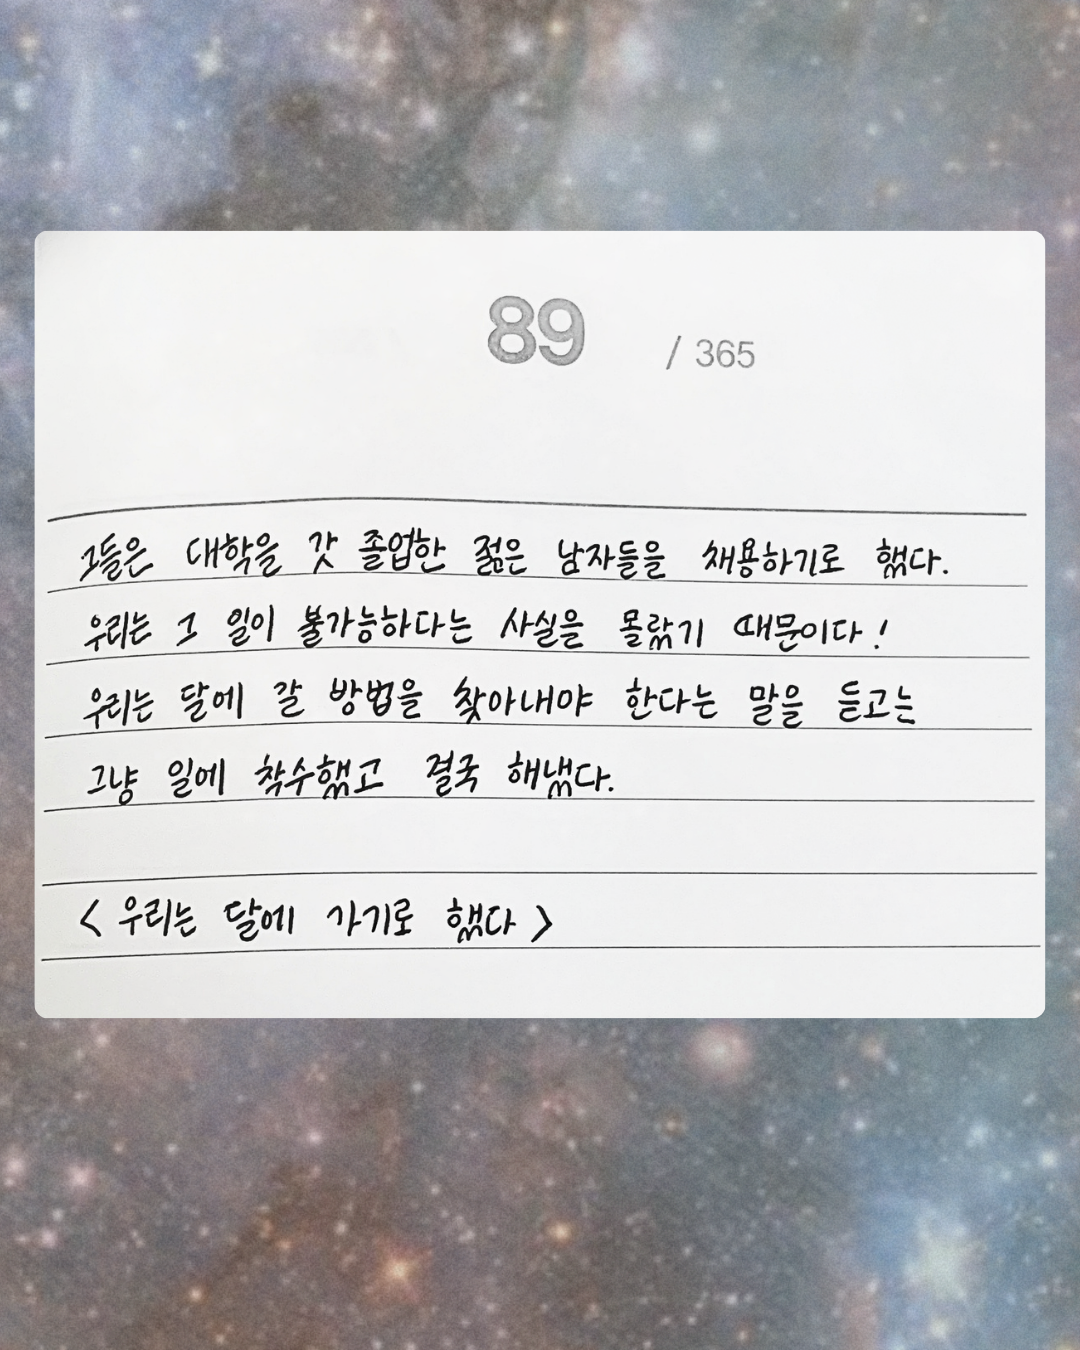 89 / 365
그들은 대학을 갓 졸업한 젊은 남자들을 채용하기로 했다.
우리는 그 일이 불가능하다는 사실을 몰랐기 때문이다!
우리는 달에 갈 방법을 찾아내야 한다는 말을 듣고는
그냥 일에 착수했고 결국 해냈다.
< 우리는 달에 가기로 했다 >